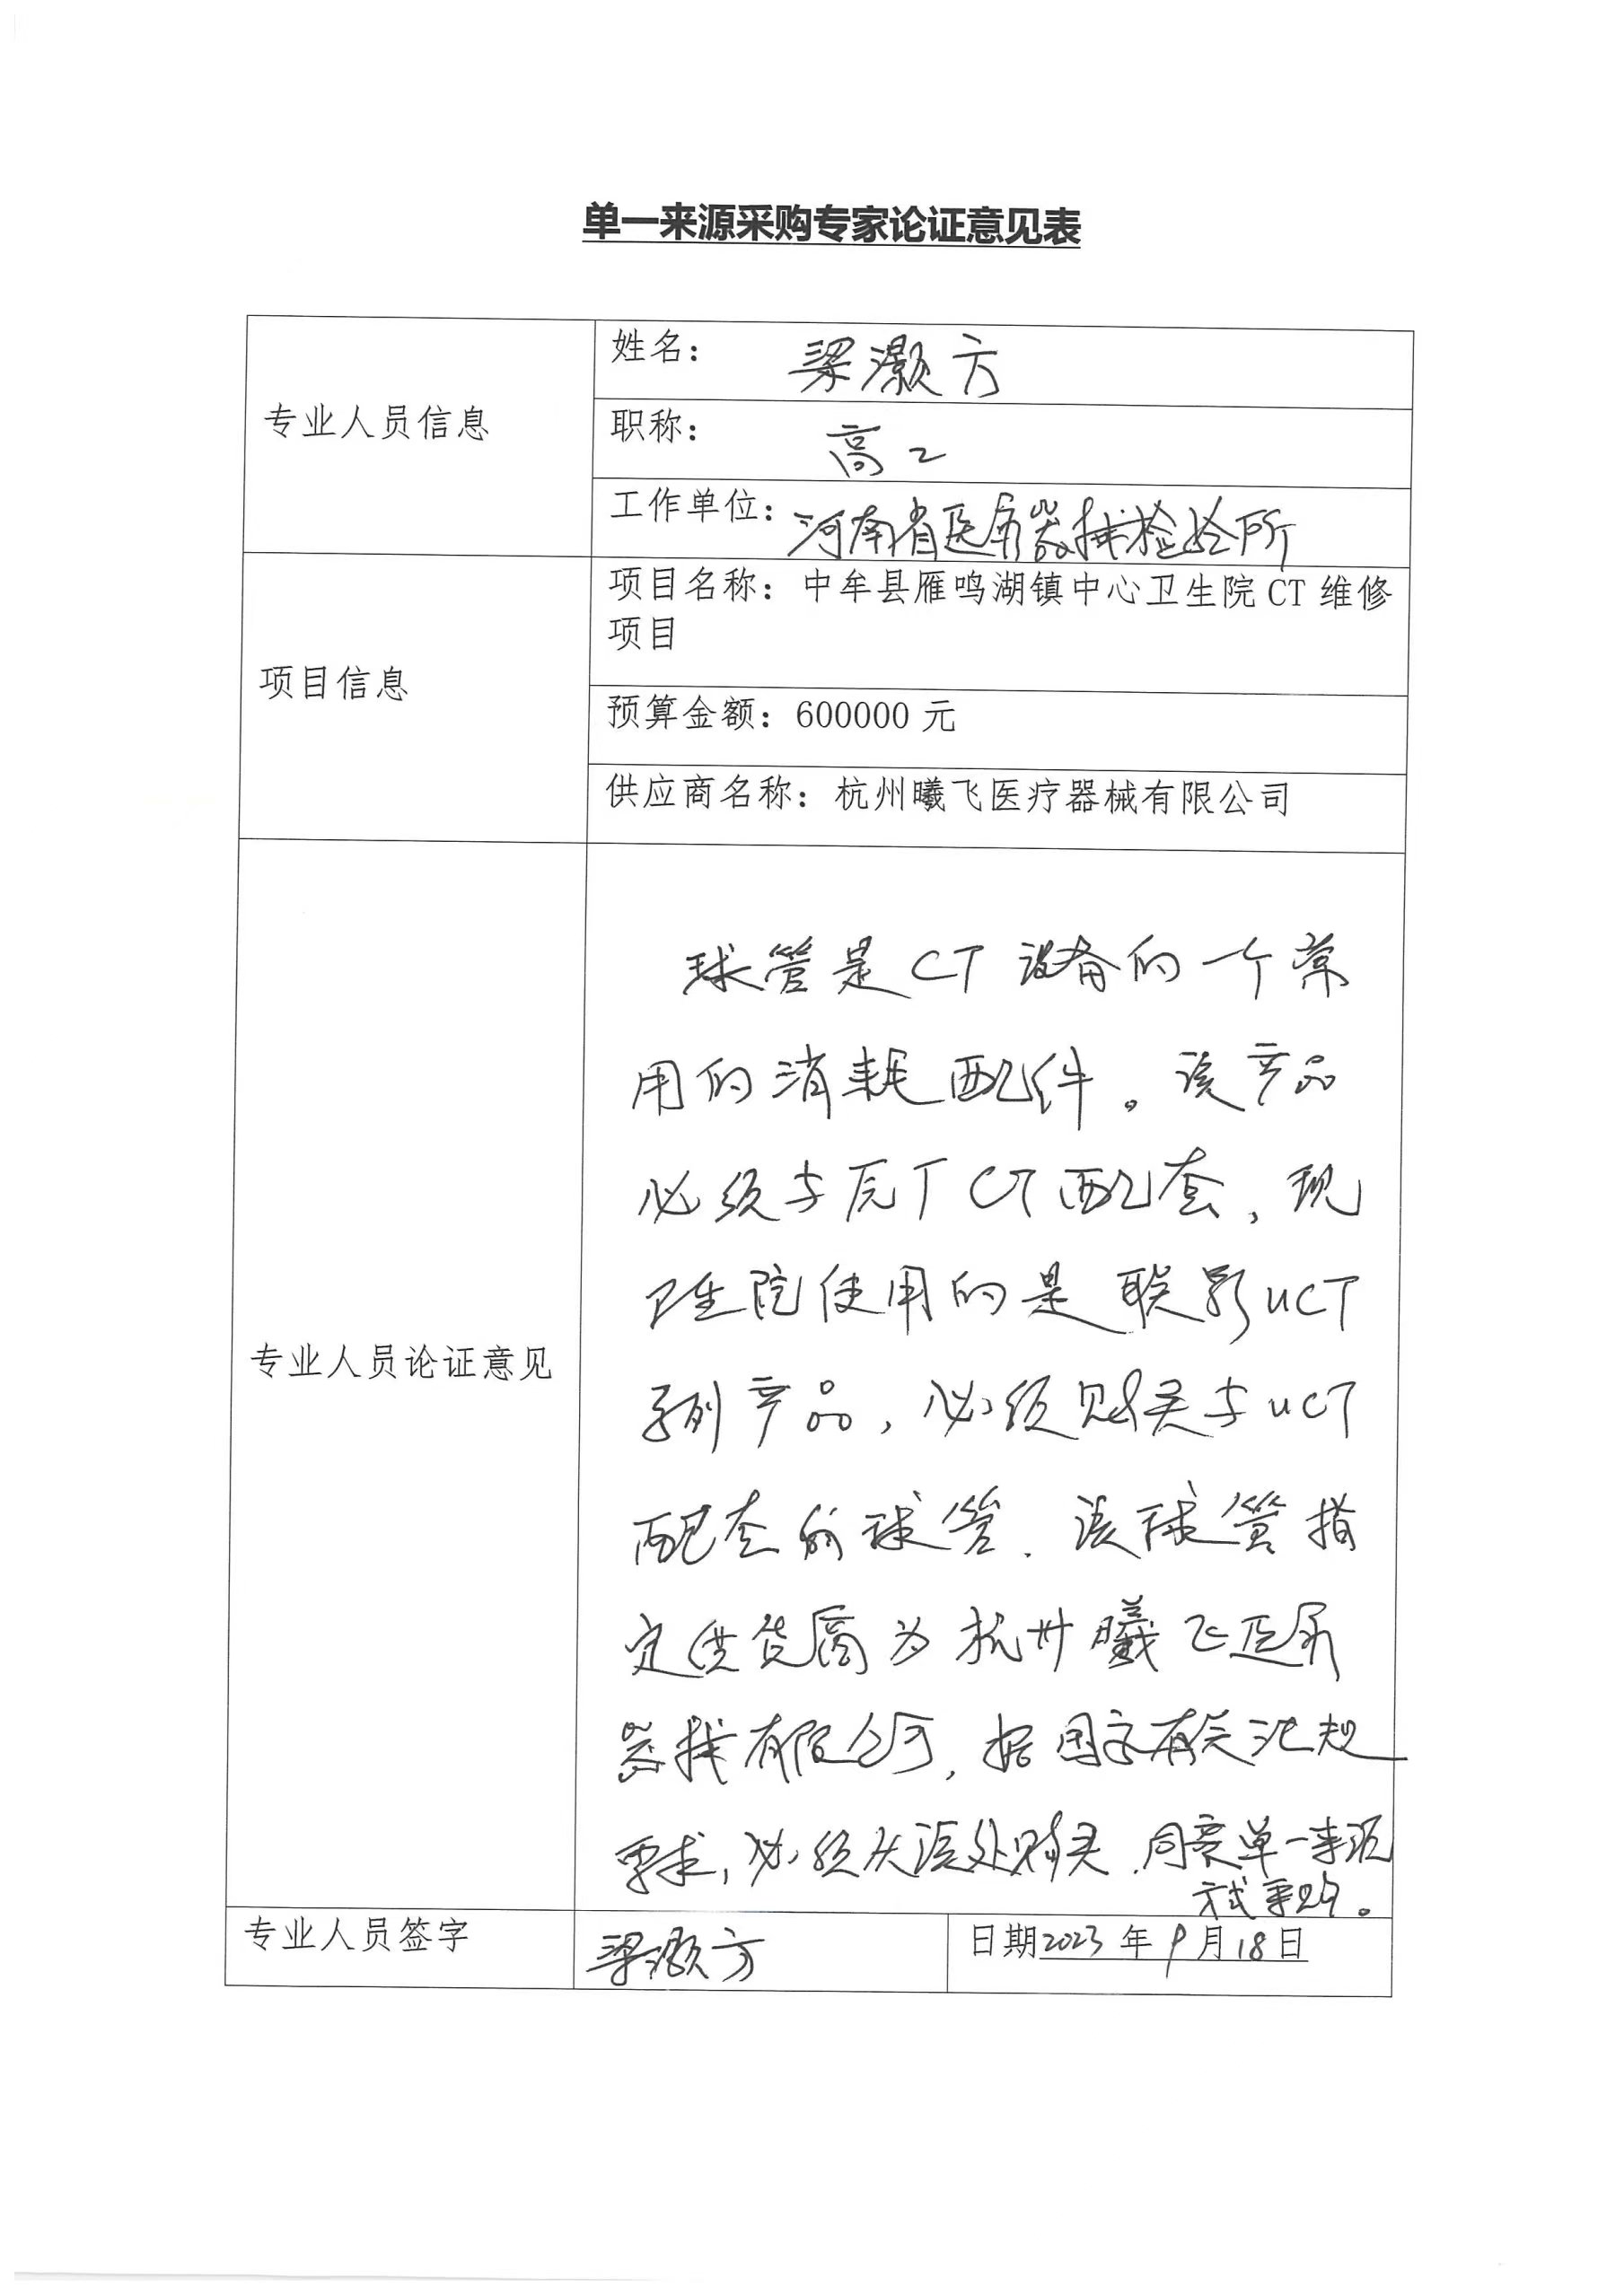 单一来源采购专家论证意见表
专业人员信息
姓名：梁灏方
职称：高工
工作单位：河南省医疗器械检验所
项目信息
项目名称：中牟县雁鸣湖镇中心卫生院 CT 维修
项目
预算金额：600000 元
供应商名称：杭州曦飞医疗器械有限公司
专业人员论证意见
球管是 CT 设备的一个常
用的消耗配件。该产品
必须与原厂 CT 配套，现
卫生院使用的是联影 uCT
系列产品，必须购买与 uCT
配套的球管．该球管指
定供货商为杭州曦飞医疗
器械有限公司，据国家有关法规
要求，必须从该处购买．同意单一来源
方式采购。
专业人员签字
梁灏方
日期2023 年 9 月 18 日